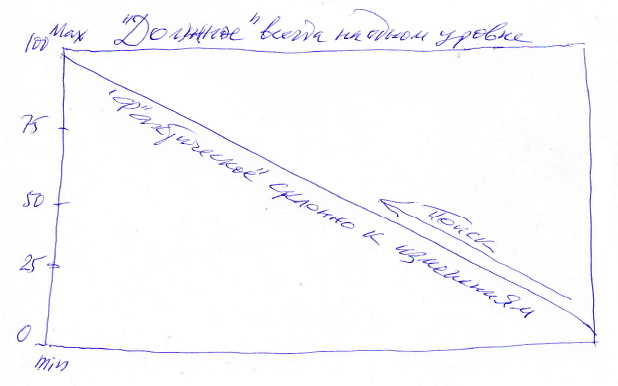 Max "Должное" всегда на одном уровне
100
75
50
25
0
min
"Фактическое" склонно к изменениям
Поиск